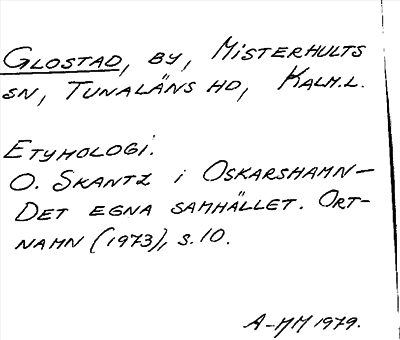 GLOSTAD, BY, MISTERHULTS
SN, TUNALÄNS HD, KALM.L.
ETYMOLOGI:
O. SKANTZ i OSKARSHAMN–
DET EGNA SAMHÄLLET. ORT-
NAMN (1973), S.10.
A-MM 1979.